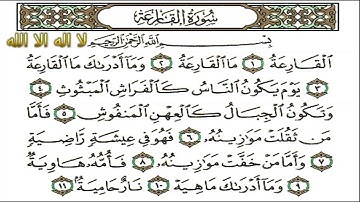 سورة القارعة
لا اله الا الله
بِسْمِ اللَّهِ الرَّحْمَنِ الرَّحِيمِ
الْقَارِعَةُ ١ مَا الْقَارِعَةُ ٢ وَمَا أَدْرَاكَ مَا الْقَارِعَةُ
٣ يَوْمَ يَكُونُ النَّاسُ كَالْفَرَاشِ الْمَبْثُوثِ ٤
وَتَكُونُ الْجِبَالُ كَالْعِهْنِ الْمَنْفُوشِ ٥ فَأَمَّا
مَن ثَقُلَتْ مَوَازِينُهُ ٦ فَهُوَ فِي عِيشَةٍ رَاضِيَةٍ
٧ وَأَمَّا مَنْ خَفَّتْ مَوَازِينُهُ ٨ فَأُمُّهُ هَاوِيَةٌ
٩ وَمَا أَدْرَاكَ مَا هِيَهْ ١٠ نَارٌ حَامِيَةٌ ١١